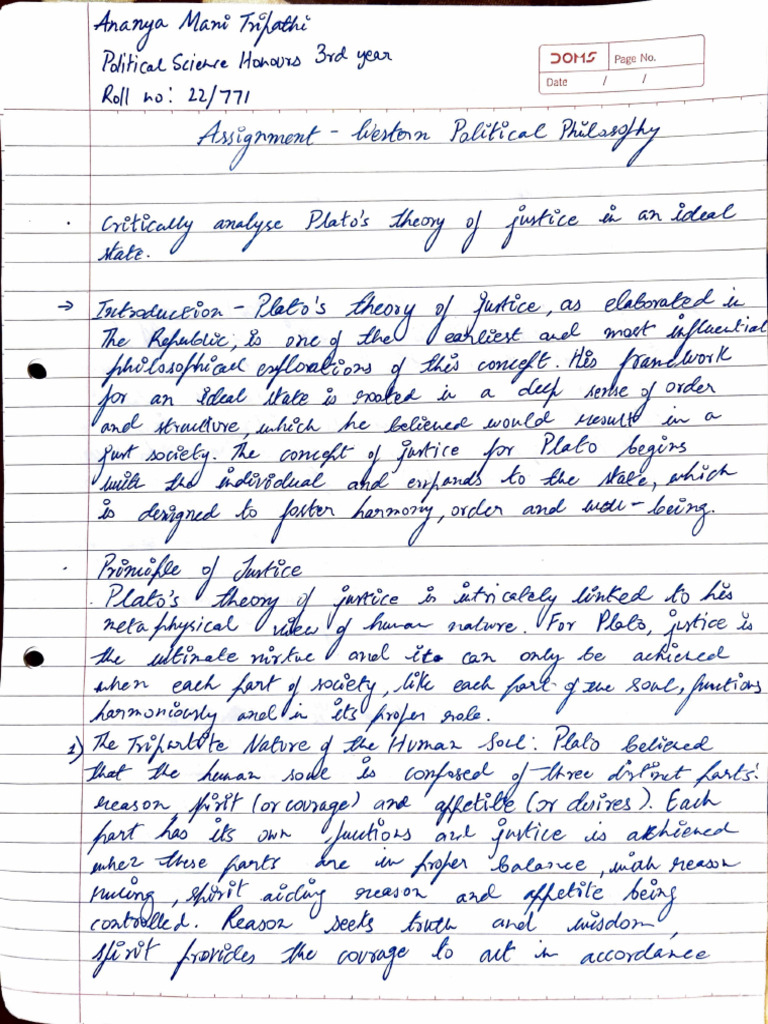 Ananya Mani Tripathi
Political Science Honours 3rd year
Roll no: 22/771
DOMS Page No.
Date / /
Assignment - Western Political Philosophy
. Critically analyse Plato's theory of justice in an ideal
state.
→ Introduction - Plato's theory of justice, as elaborated in
The Republic, is one of the earliest and most influential
philosophical explorations of this concept. His framework
for an ideal state is rooted in a deep sense of order
and structure, which he believed would result in a
just society. The concept of justice for Plato begins
with the individual and expands to the state, which
is designed to foster harmony, order and well-being.
. Principle of Justice
. Plato's theory of justice is intricately linked to his
metaphysical view of human nature. For Plato, justice is
the ultimate virtue and it can only be achieved
when each part of society, like each part of the soul, functions
harmoniously and in its proper role.
1) The Tripartite Nature of the Human Soul: Plato believed
that the human soul is composed of three distinct parts:
reason, spirit (or courage) and appetite (or desires). Each
part has its own functions and justice is achieved
when these parts are in proper balance, with reason
ruling, spirit aiding reason and appetite being
controlled. Reason seeks truth and wisdom,
spirit provides the courage to act in accordance